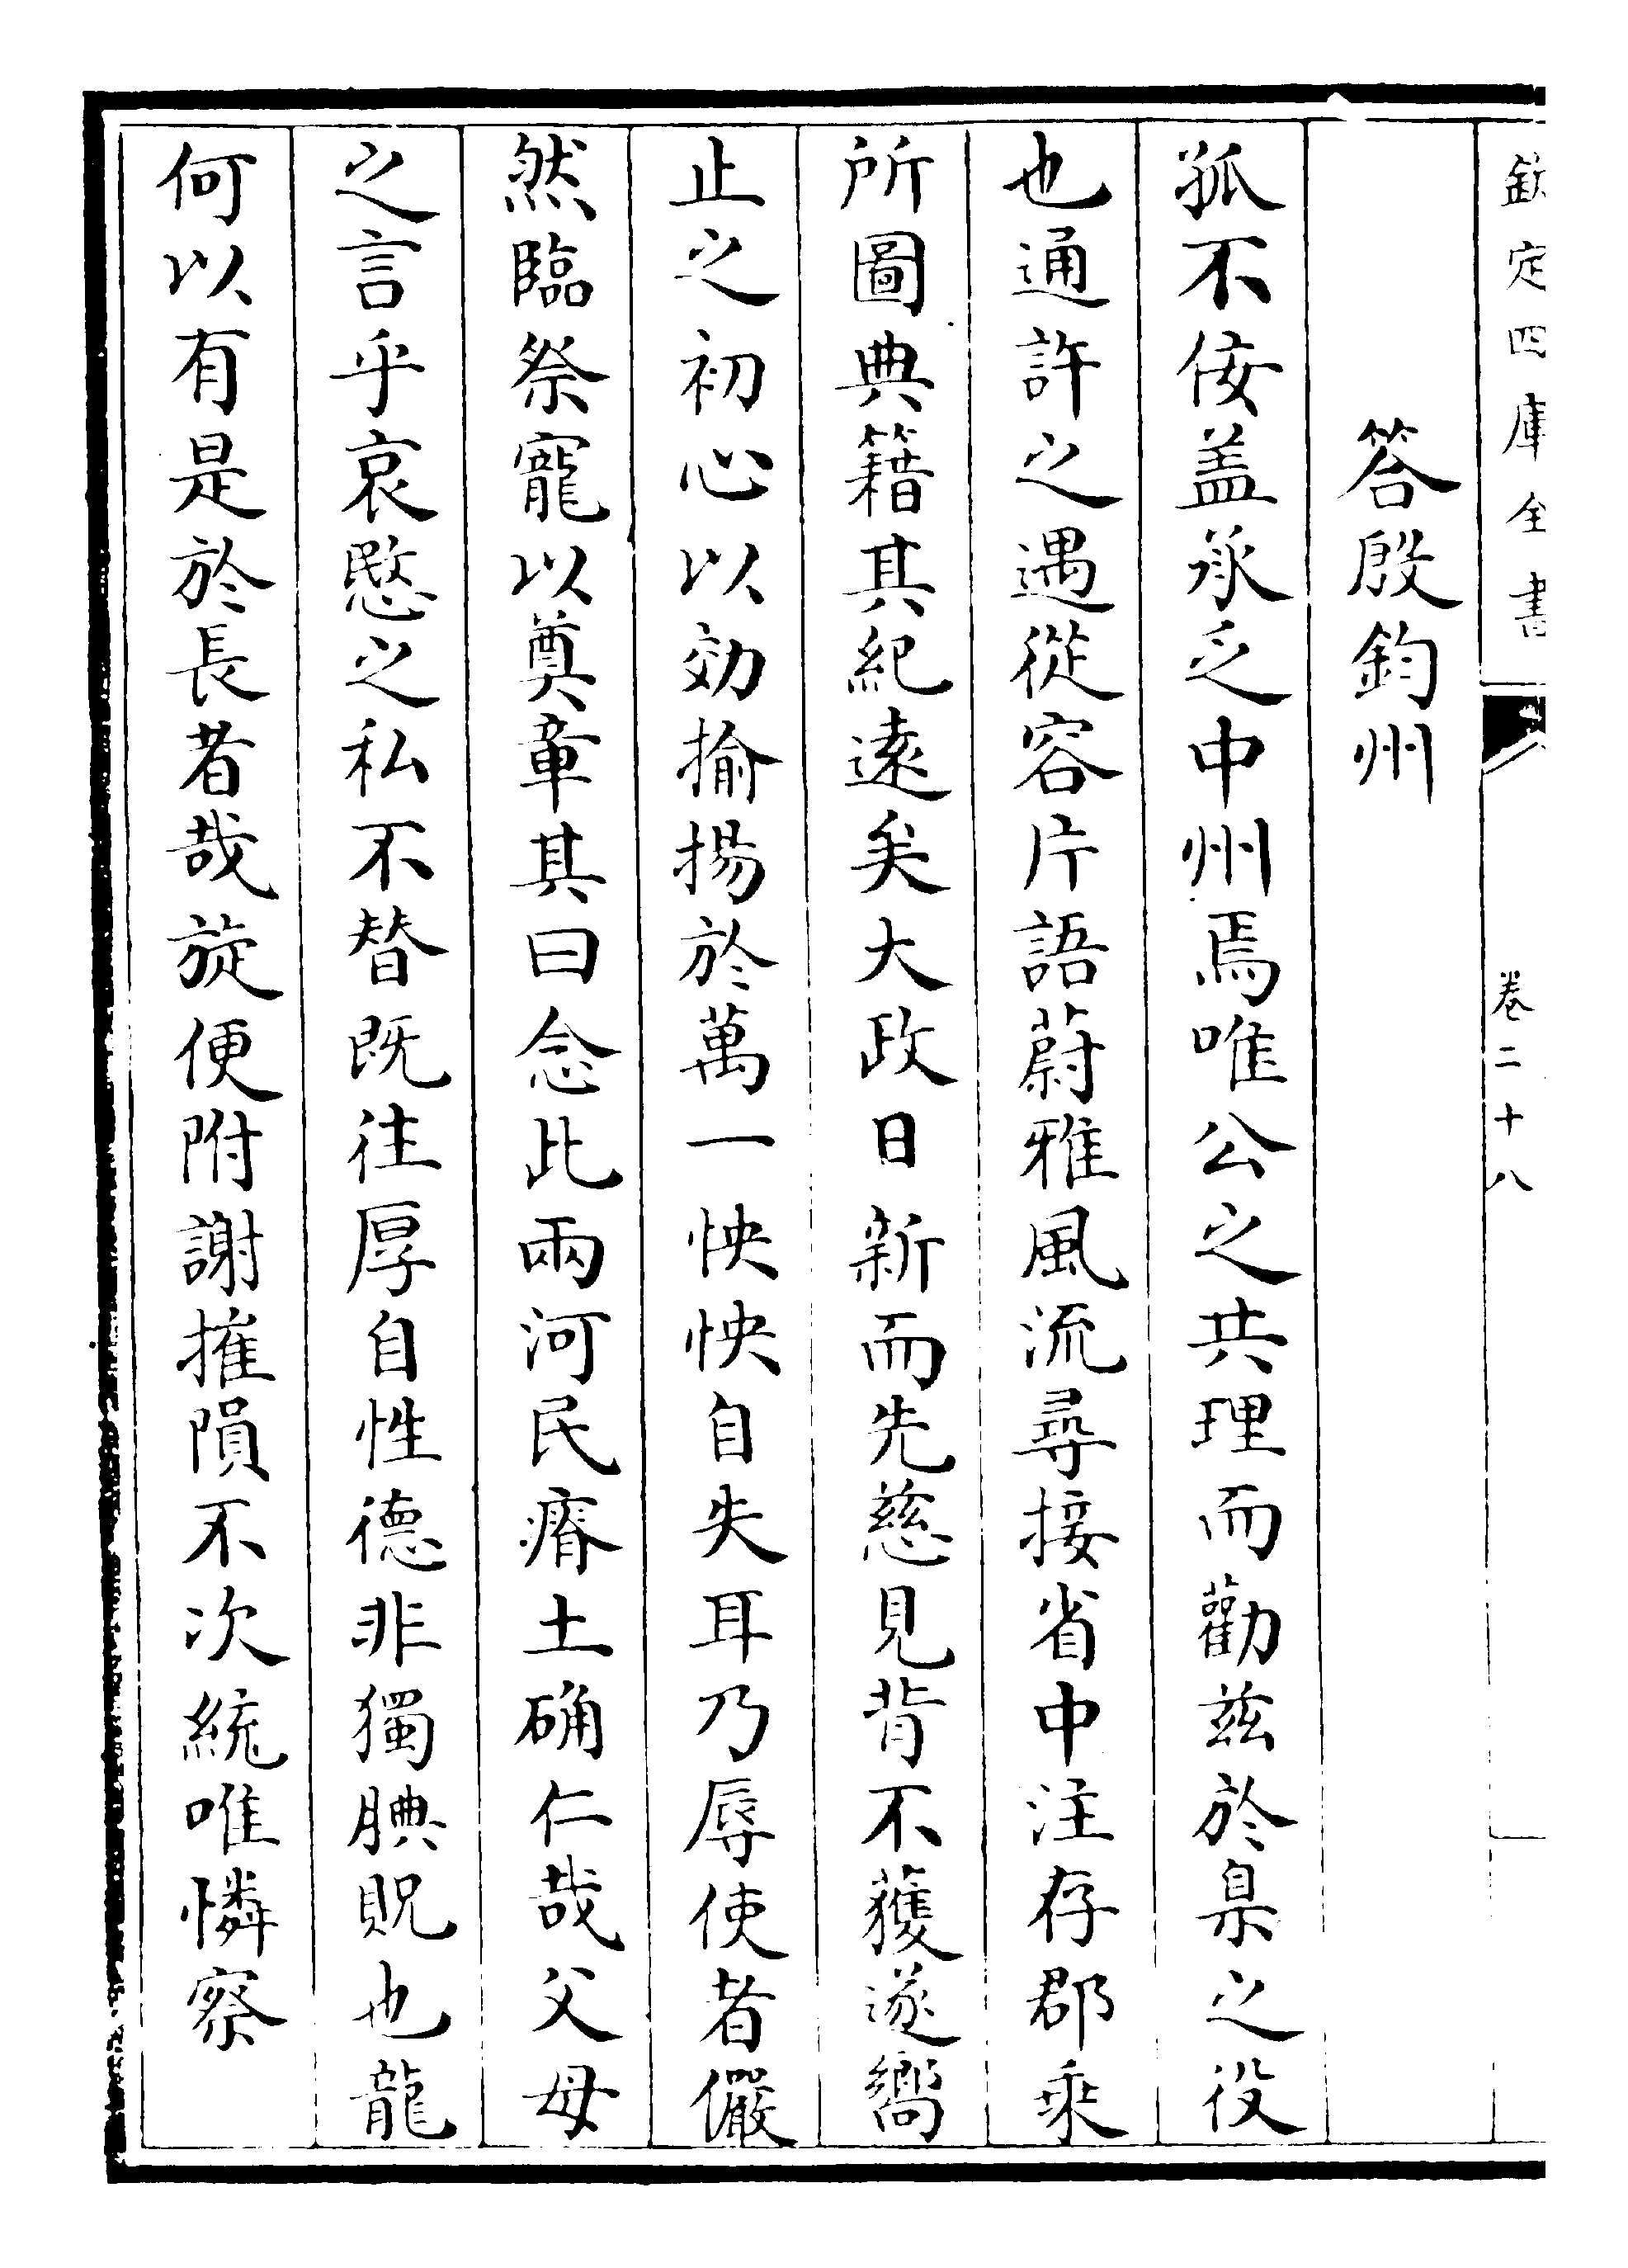 欽定四庫全書
卷二十八
答殷鈞州
孤不佞盖承乏中州焉唯公之共理而勸兹於臬之役
也通許之遇從容片語蔚雅風流尋接省中注存郡乗
所圖典籍其紀逺矣大政日新而先慈見背不獲遂嚮
止之初心以効揄揚於萬一怏怏自失耳乃辱使者儼
然臨祭寵以奠章其曰念此兩河民瘠土确仁哉父母
之言乎哀愍之私不替既往厚自性德非獨腆貺也龍
何以有是於長者哉旋便附謝摧隕不次統唯憐察